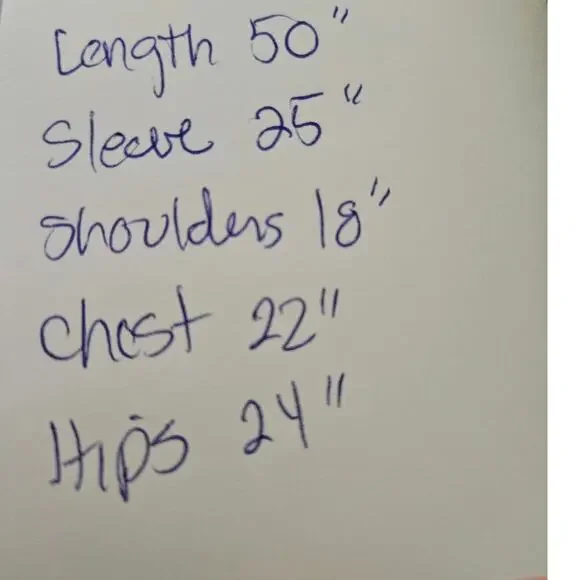 Length 50"
Sleeve 25"
Shoulders 18"
Chest 22"
Hips 24"